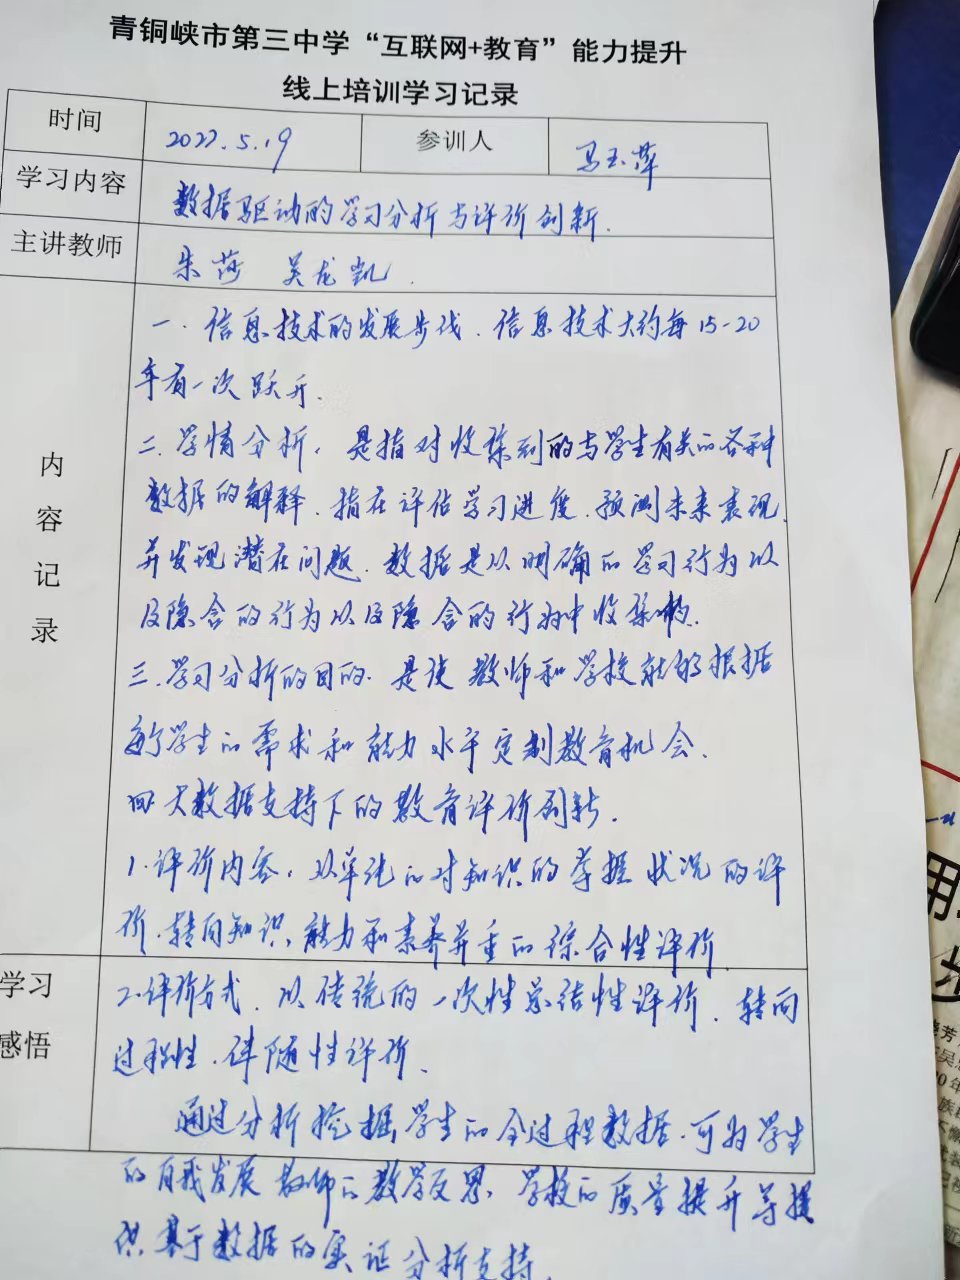 青铜峡市第三中学“互联网+教育”能力提升
线上培训学习记录
时间 2022.5.19 参训人 马玉萍
学习内容 数据驱动的学习分析与评价创新.
主讲教师 朱莎 吴龙凯.
内容记录
一. 信息技术的发展步伐. 信息技术大约每15-20
年有一次跃升.
二. 学情分析, 是指对收集到的与学生有关的各种
数据的解释. 指在评估学习进度. 预测未来表现,
并发现潜在问题. 数据是从明确的学习行为以
及隐含的行为以及隐含的行为中收集的.
三. 学习分析的目的. 是使教师和学校能够根据
每个学生的需求和能力水平定制教育机会.
四大数据支持下的教育评价创新.
1. 评价内容, 从单纯的对知识的掌握状况的评
价. 转向知识, 能力和素养并重的综合性评价
学习
感悟
2. 评价方式. 从传统的一次性总结性评价. 转向
过程性. 伴随性评价.
通过分析挖掘学生的全过程数据. 可为学生
的自我发展 教师的教学反思. 学校的质量提升等提
供基于数据的实证分析支持.
用
步
芳